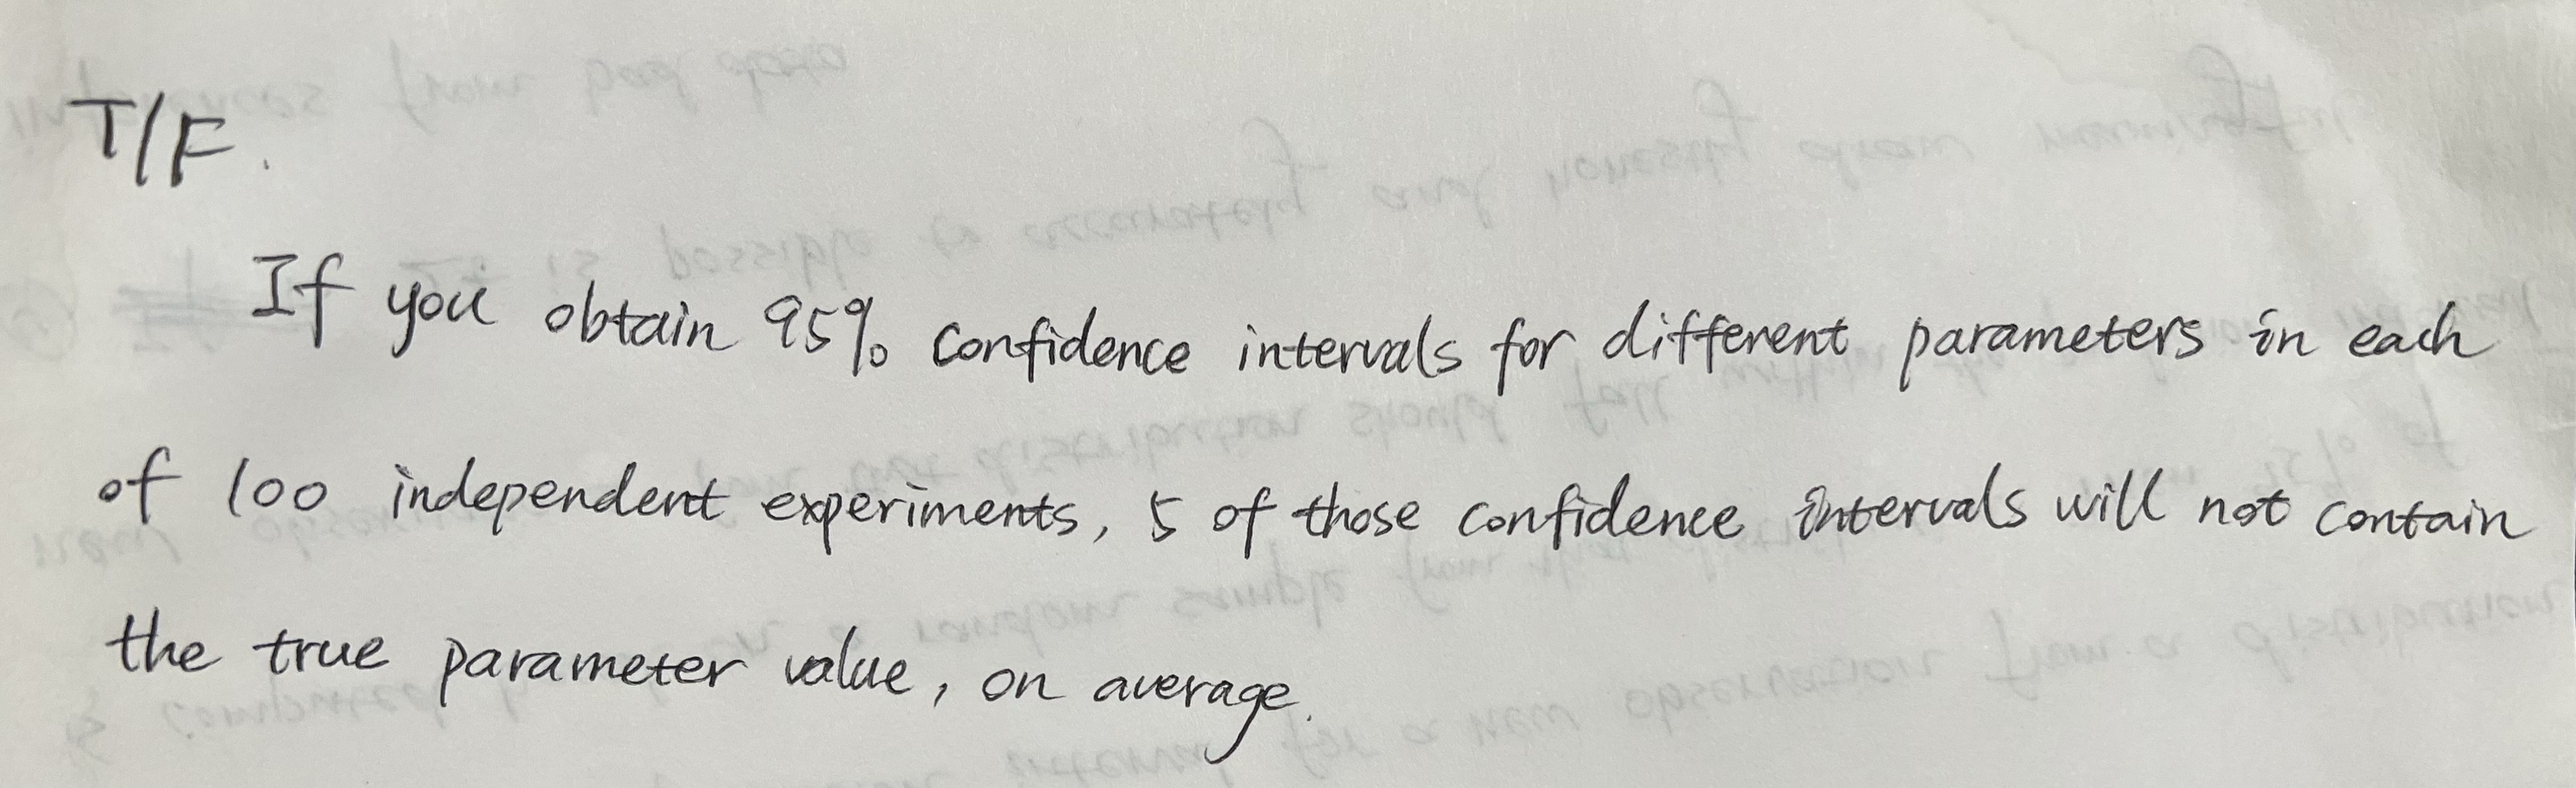 T/F.
If you obtain 95% confidence intervals for different parameters in each
of 100 independent experiments, 5 of those confidence intervals will not contain
the true parameter value, on average.